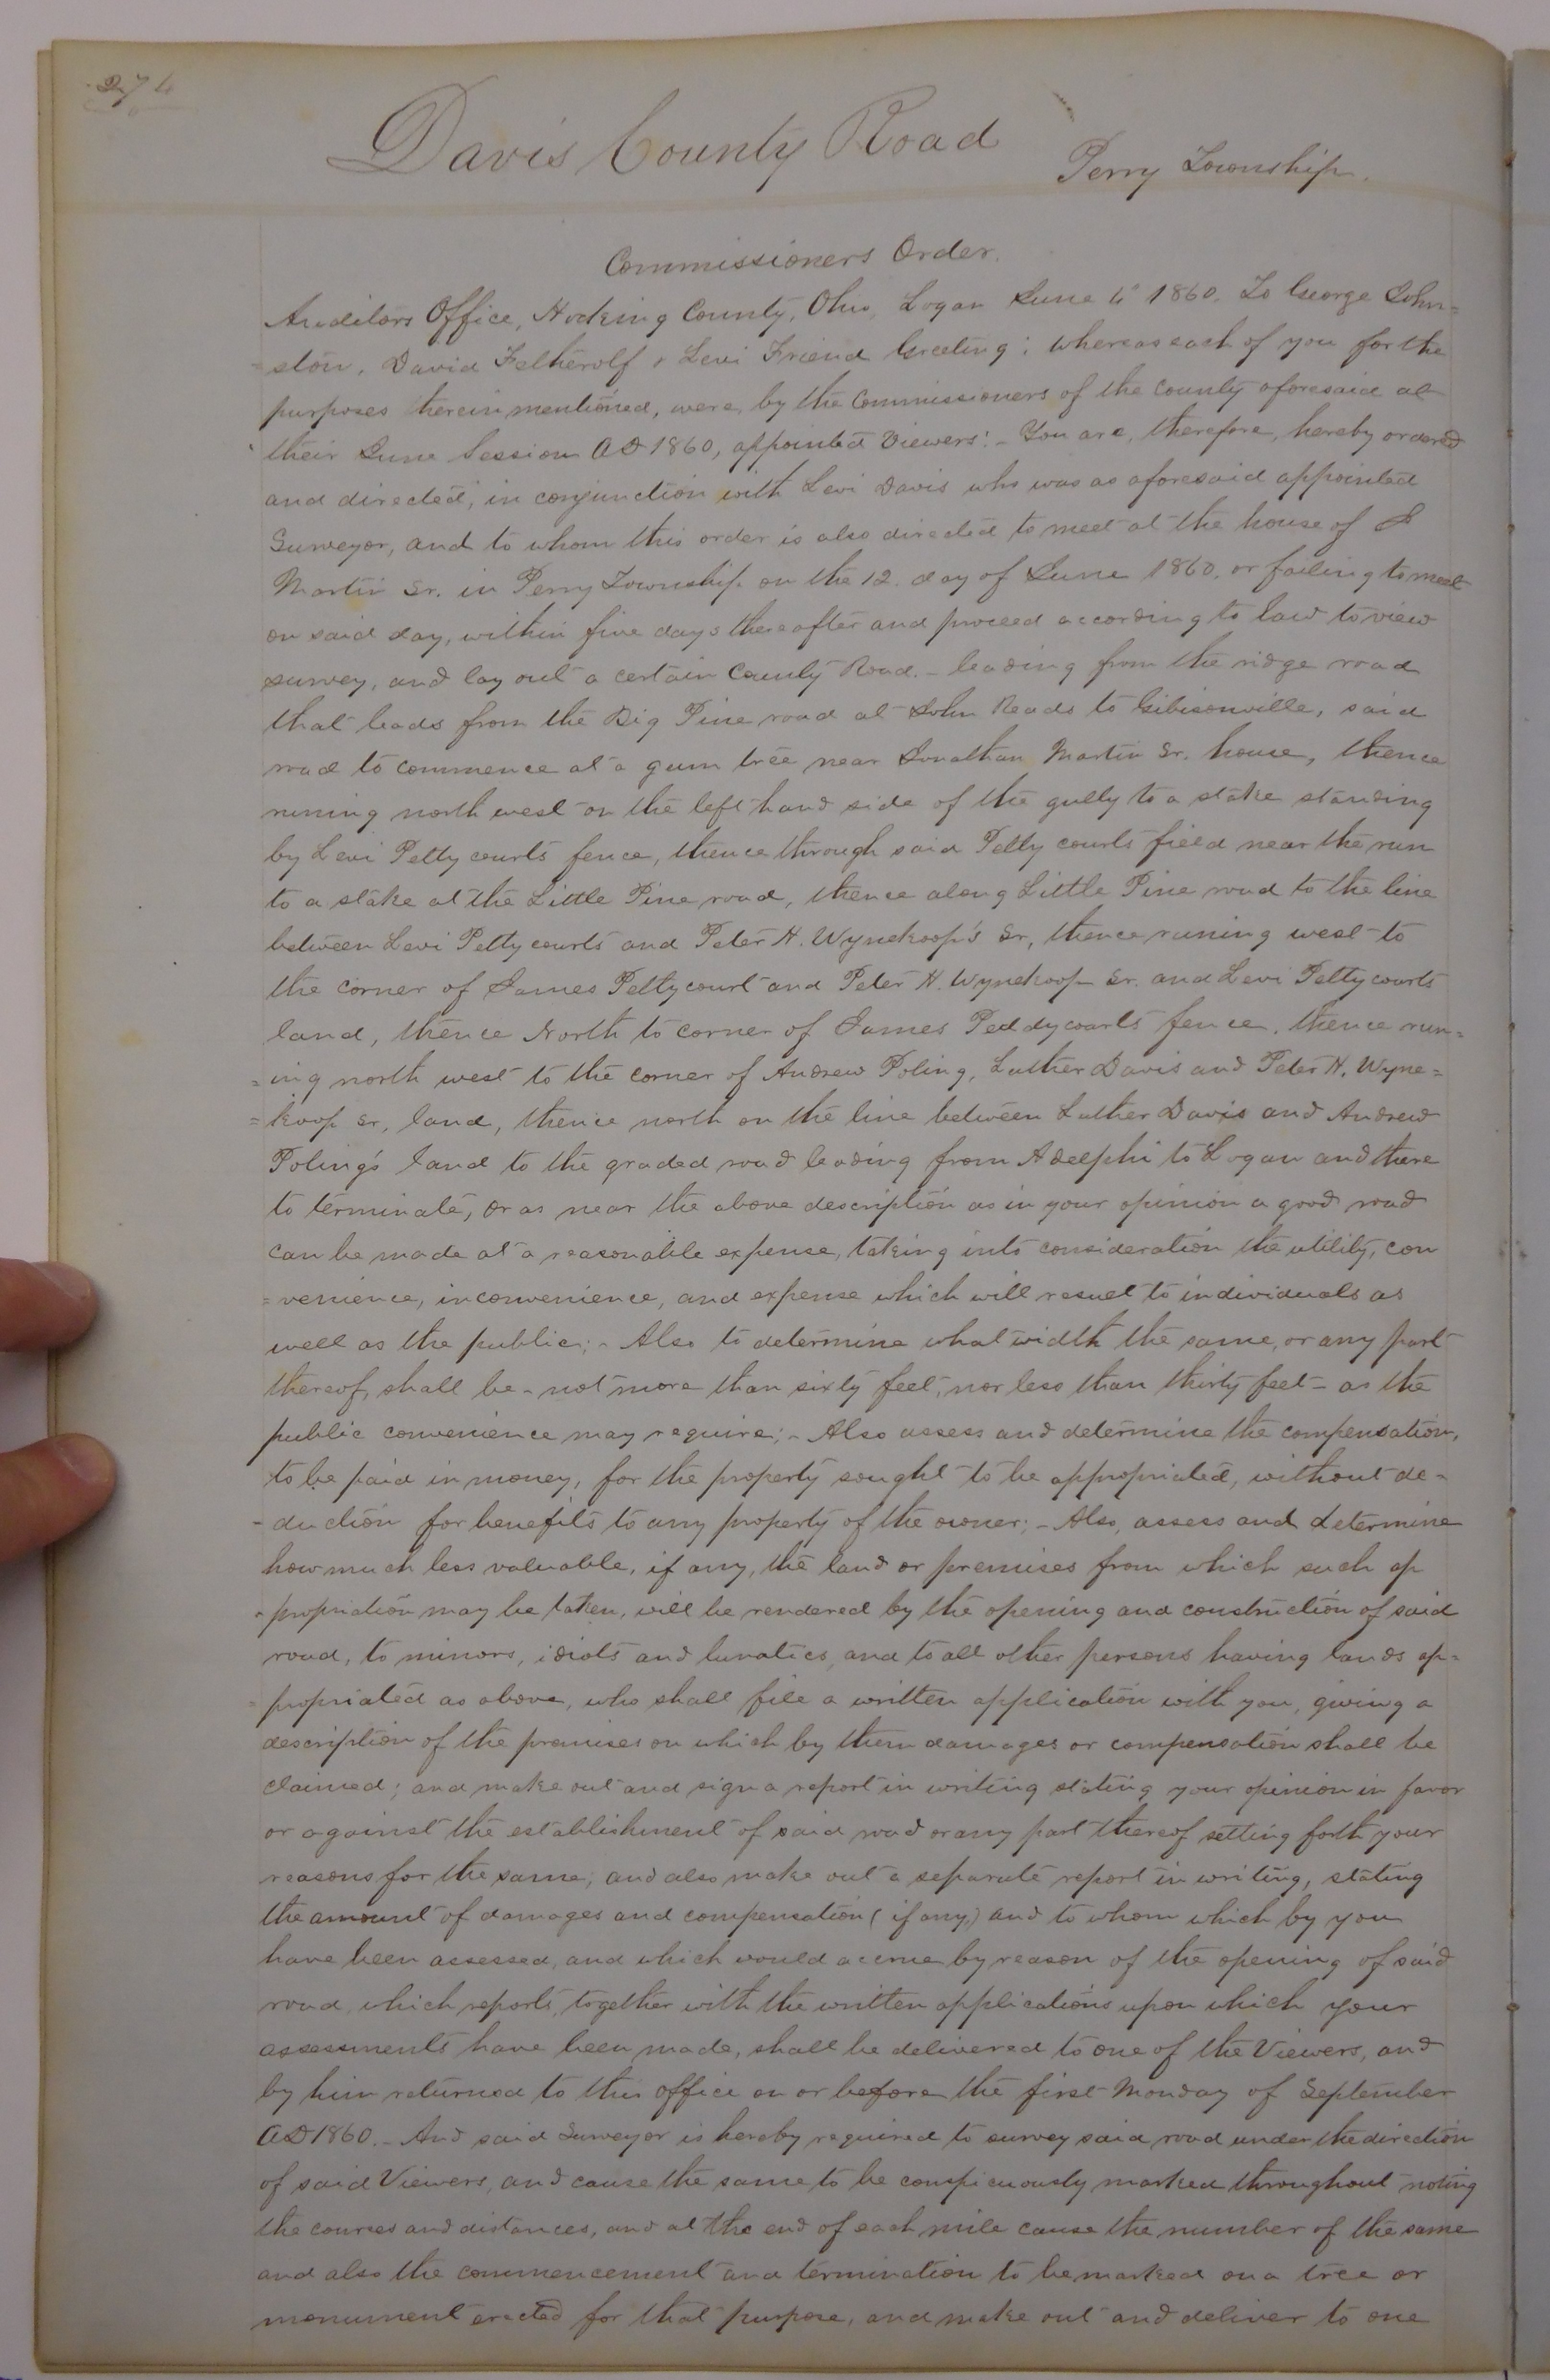 274
Davis County Road
Perry Township.
Commissioners Order.
Auditors Office, Hocking County, Ohio, Logan June 4" 1860. To George John=
=ston, David Fetherolf & Levi Friend Greeting: whereas each of you for the
purposes therein mentioned, were, by the Commissioners of the County aforesaid at
their June Session AD 1860, appointed Viewers: - You are, therefore, hereby ordered
and directed, in conjunction with Levi Davis who was as aforesaid appointed
Surveyor, and to whom this order is also directed to meet at the house of J
Martin Sr. in Perry Township on the 12. day of June 1860. or failing to meet
on said day, within five days thereafter and proceed according to law to view
survey, and lay out a certain County Road. - leading from the ridge road
that leads from the Big Pine road at John Reads to Gibisonville, said
road to commence at a gum tree near Jonathan Martin Sr. house, thence
runing north west on the left hand side of the gully to a stake standing
by Levi Petty courts fence, thence through said Petty courts field near the run
to a stake at the Little Pine road, thence along Little Pine road to the line
between Levi Petty courts and Peter H. Wynekoop's Sr, thence runing west to
the corner of James Pettycourt and Peter H. Wynekoop Sr. and Levi Pettycourts
land, thence North to corner of James Peddycoarts fence, thence run=
=ing north west to the corner of Andrew Poling, Luther Davis and Peter H. Wyne=
=koop Sr, land, thence north on the line between Luther Davis and Andrew
Poling's land to the graded road leading from Adelphi to Logan and there
to terminate, or as near the above description as in your opinion a good road
can be made at a reasonable expense, taking into consideration the utility, con
=venience, inconvenience, and expense which will result to individuals as
well as the public; - Also to determine what width the same, or any part
thereof, shall be - not more than sixty feet, nor less than thirty feet - as the
public convenience may require; - Also assess and determine the compensation,
to be paid in money, for the property sought to be appropriated, without de-
-duction for benefits to any property of the owner; - Also, assess and determine
how much less valuable, if any, the land or premises from which such ap
-propriation may be taken, will be rendered by the opening and construction of said
road, to minors, idiots and lunatics, and to all other persons having lands ap=
=propriated as above, who shall file a written application with you, giving a
description of the premises on which by them damages or compensation shall be
claimed; and make out and sign a report in writing stating your opinion in favor
or against the establishment of said road or any part thereof setting forth your
reasons for the same; and also make out a separate report in writing, stating
the amount of damages and compensation (if any,) and to whom which by you
have been assessed, and which would accrue by reason of the opening of said
road, which reports, together with the written applications upon which your
assessments have been made, shall be delivered to one of the Viewers, and
by him returned to this office on or before the first Monday of September
AD 1860. - And said Surveyor is hereby required to survey said road under the direction
of said Viewers, and cause the same to be conspicuously marked throughout noting
the courses and distances, and at the end of each mile cause the number of the same
and also the commencement and termination to be marked on a tree or
monument erected for that purpose, and make out and deliver to one